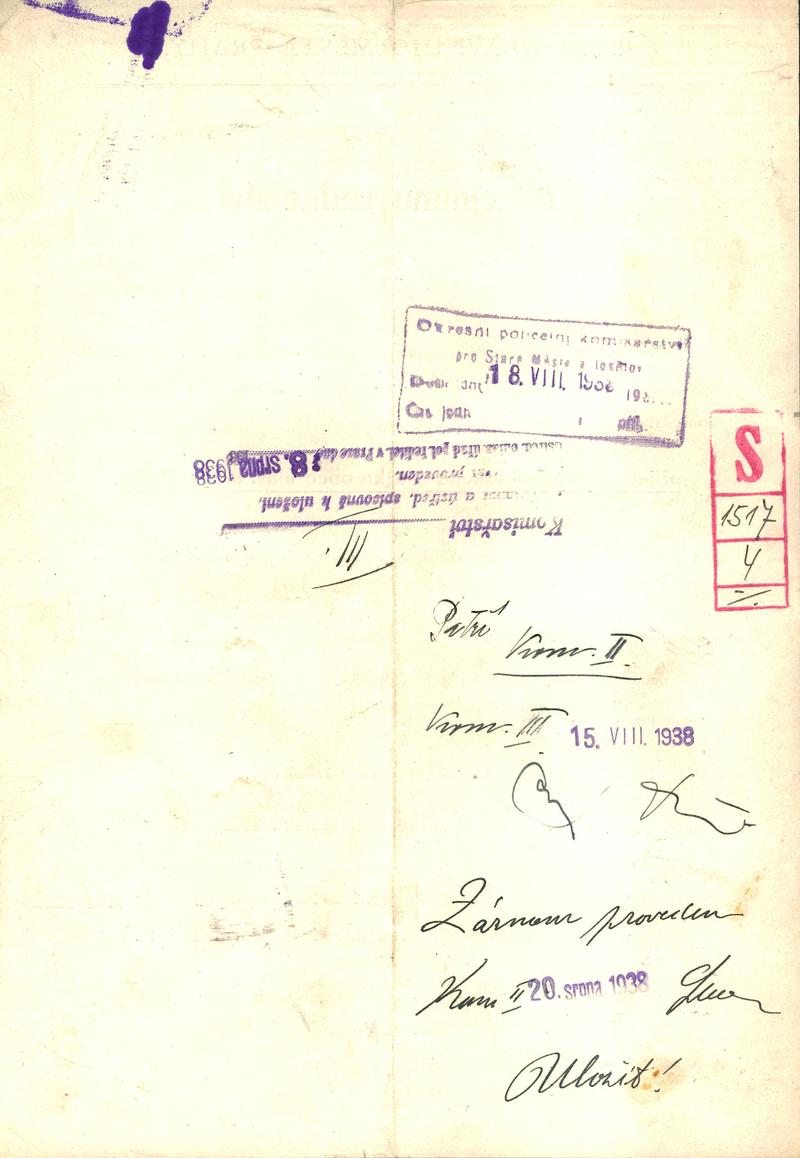 Okresní policejní komisařství
pro Staré Město a Josefov
18. VIII. 1938 193...
Čís. jedn.
S
1517
4
Komisařství III.
a ústřed. spisovně k uložení.
proveden.
ústřed. ohlaš. úřad pol. ředitel. v Praze dne 8. srpna 1938
Patří
Kom. II.
Kom. III 15. VIII. 1938
Záznam proveden
Kom II 20. srpna 1938
Uložit!